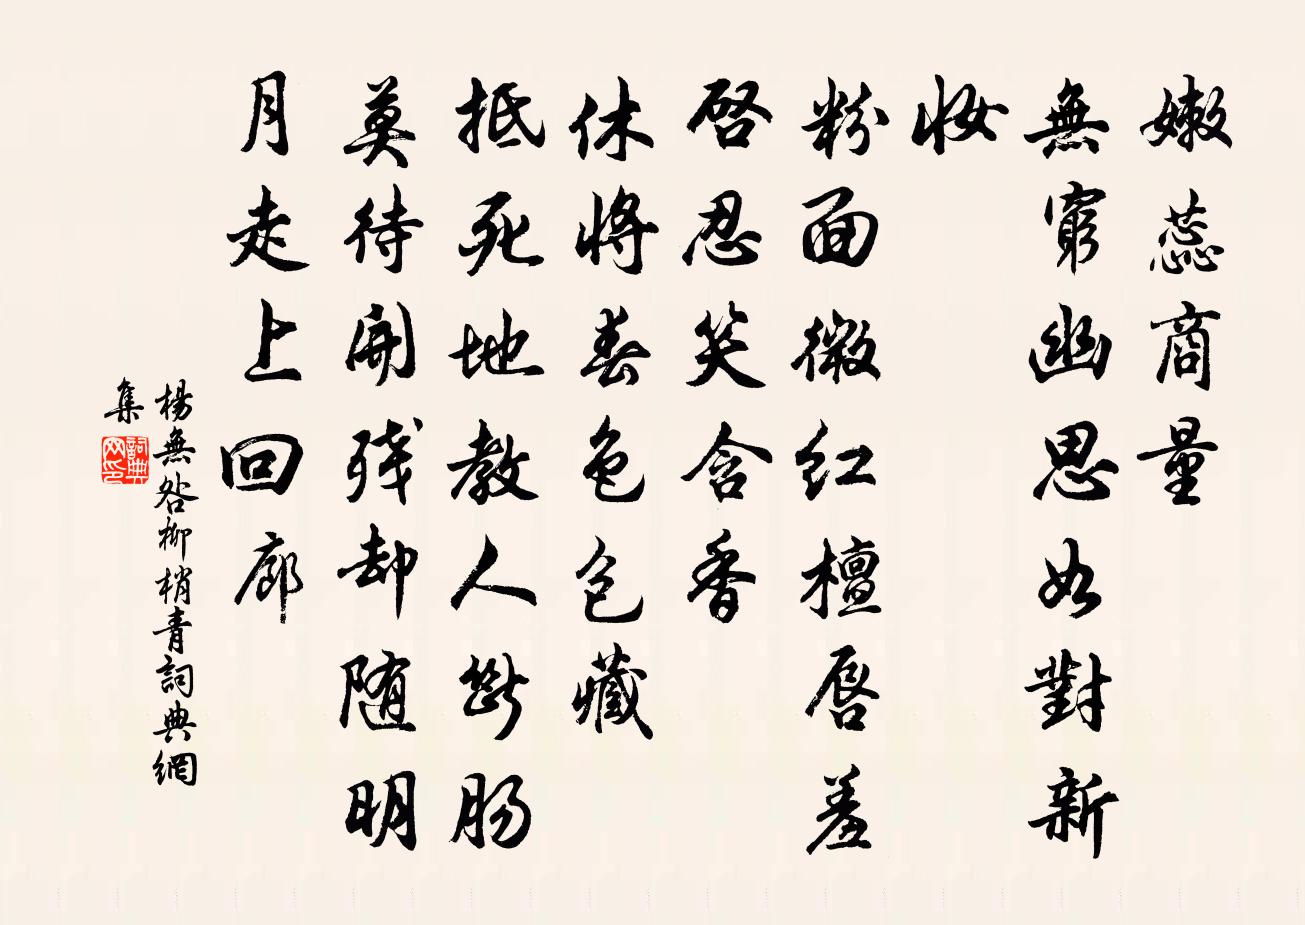 嫩蕊商量
無窮幽思如對新
妝
粉面微红檀唇羞
啓忍笑含香
休將春色包藏
抵死地教人斷肠
莫待開残却随明
月走上回廊
楊無咎柳梢青詞典網
集
詞典网印